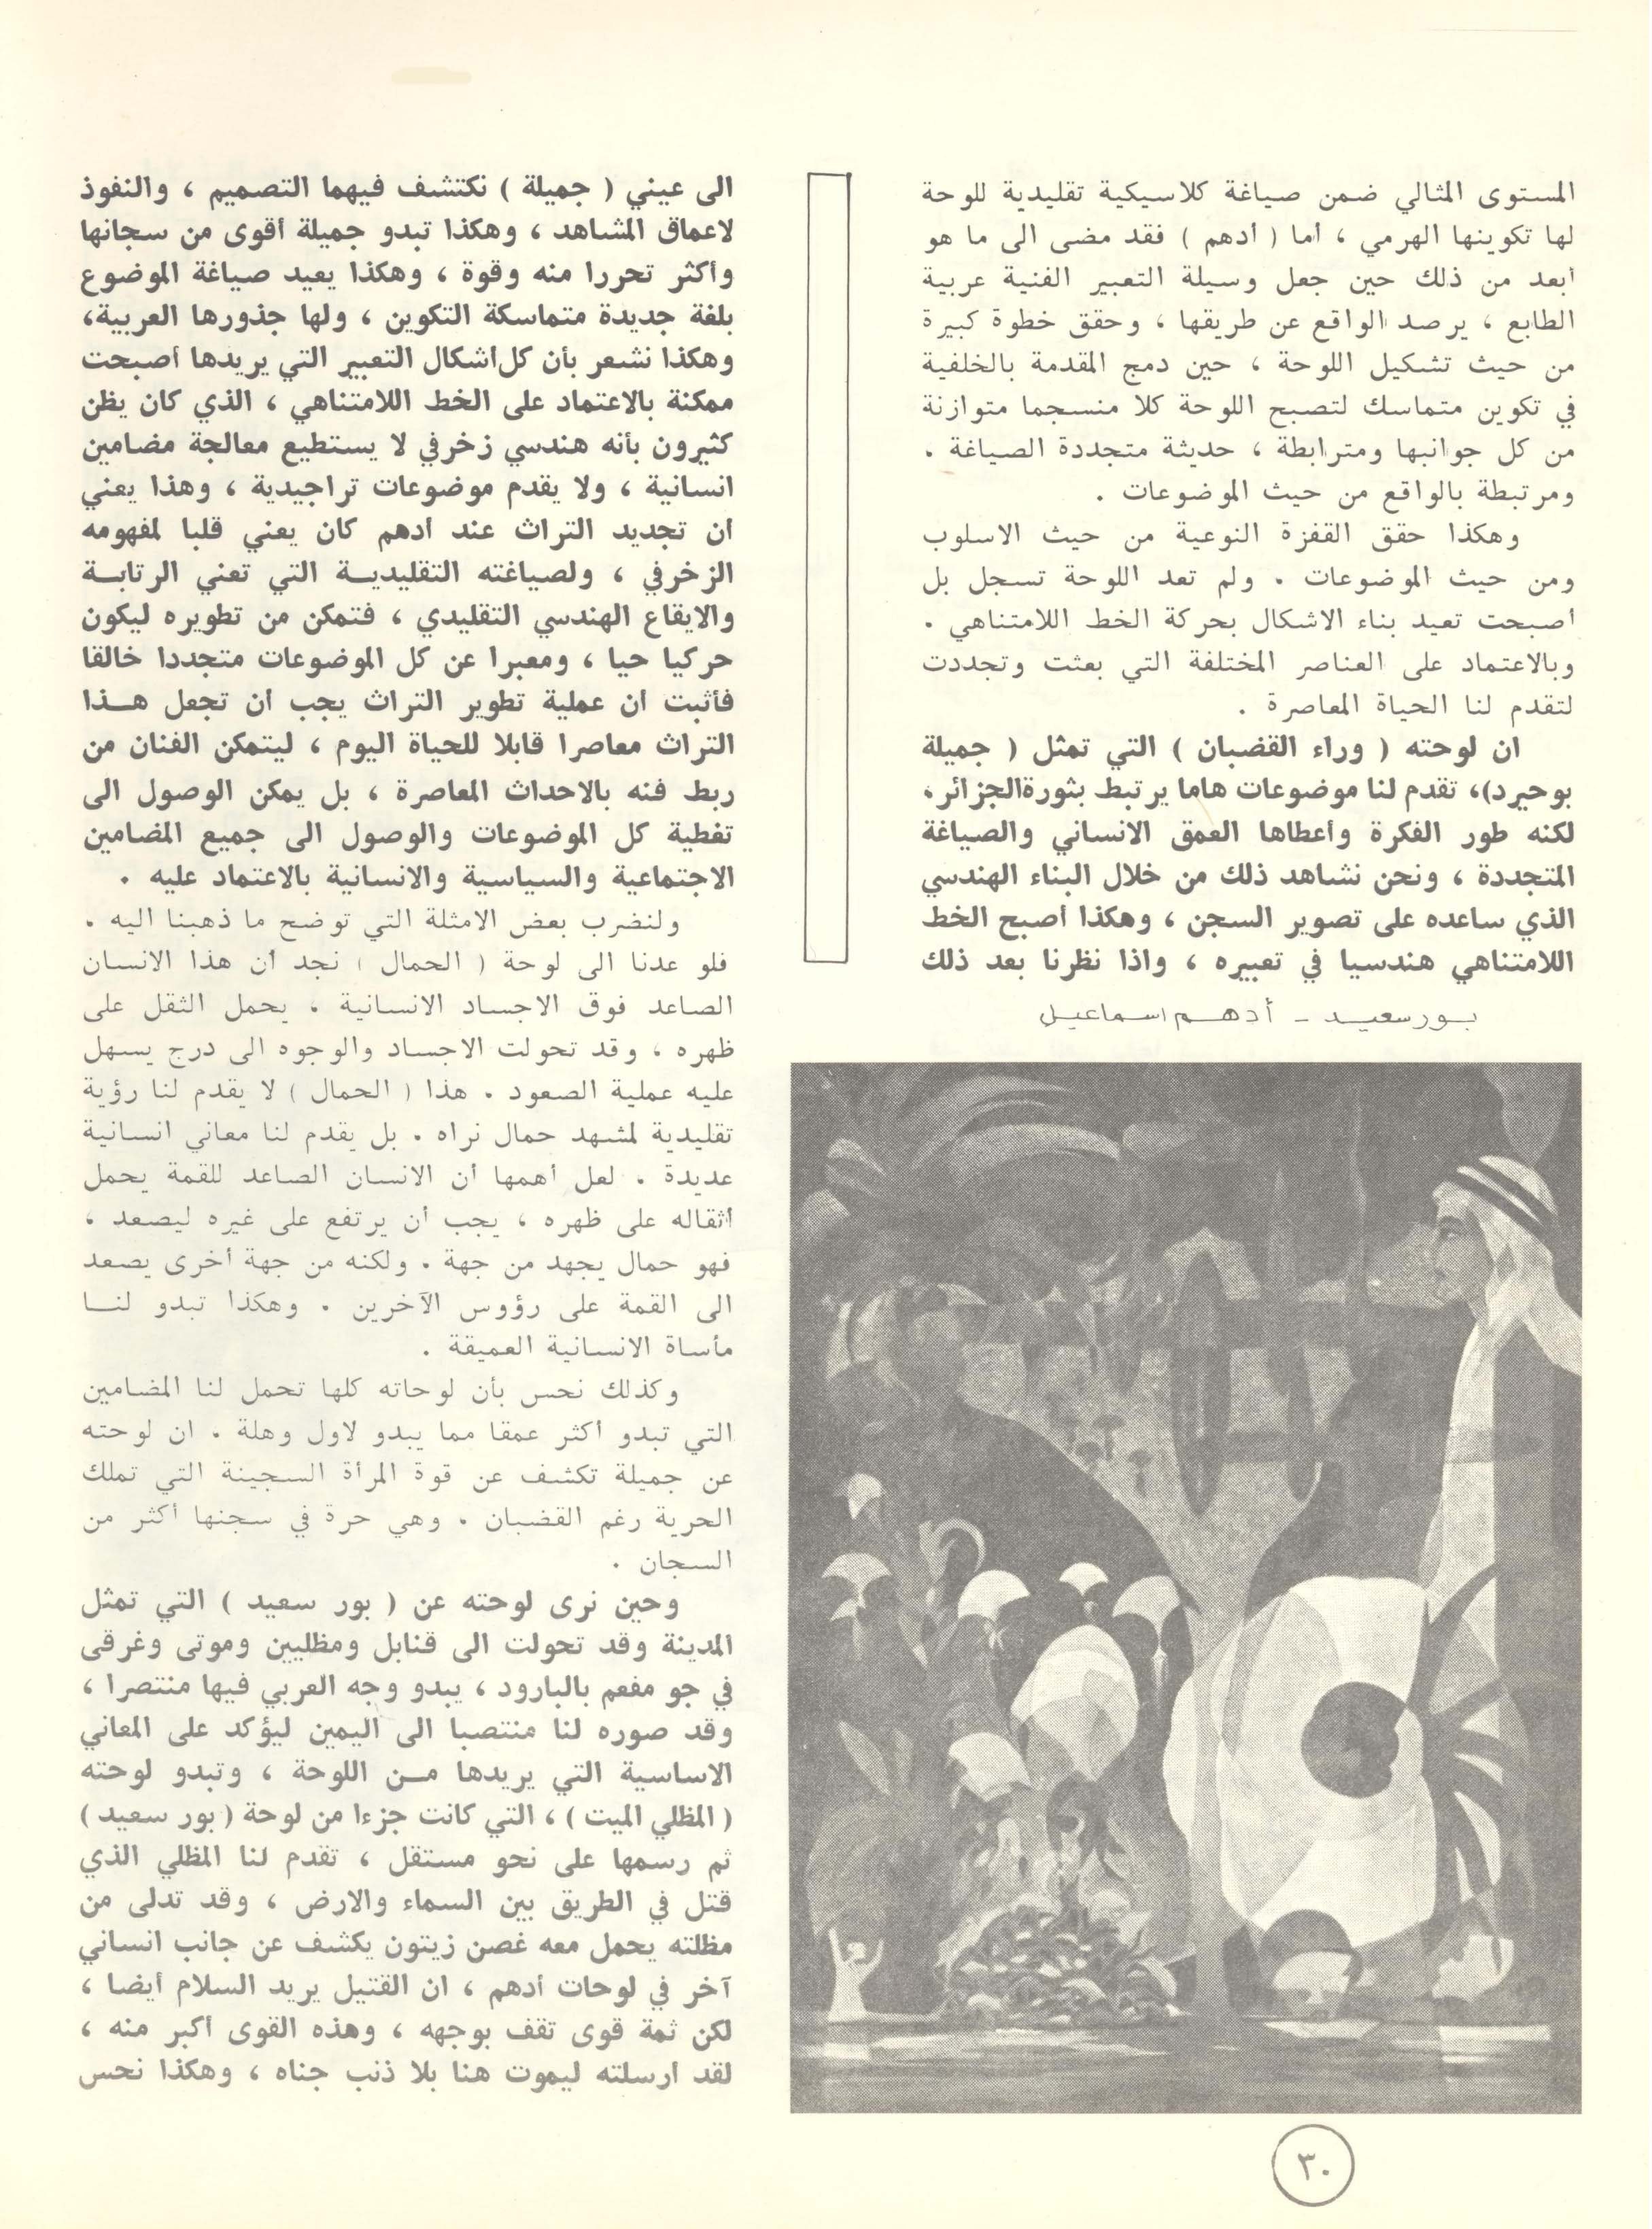 المستوى المثالي ضمن صياغة كلاسيكية تقليدية للوحة
لها تكوينها الهرمي ، أما ( أدهم ) فقد مضى الى ما هو
أبعد من ذلك حين جعل وسيلة التعبير الفنية عربية
الطابع ، يرصد الواقع عن طريقها ، وحقق خطوة كبيرة
من حيث تشكيل اللوحة ، حين دمج المقدمة بالخلفية
في تكوين متماسك لتصبح اللوحة كلا منسجما متوازنة
من كل جوانبها ومترابطة ، حديثة متجددة الصياغة .
ومرتبطة بالواقع من حيث الموضوعات .
وهكذا حقق القفزة النوعية من حيث الاسلوب
ومن حيث الموضوعات . ولم تعد اللوحة تسجل بل
أصبحت تعيد بناء الاشكال بحركة الخط اللامتناهي .
وبالاعتماد على العناصر المختلفة التي بعثت وتجددت
لتقدم لنا الحياة المعاصرة .
ان لوحته ( وراء القضبان ) التي تمثل ( جميلة
بوحيرد)، تقدم لنا موضوعات هاما يرتبط بثورةالجزائر،
لكنه طور الفكرة وأعطاها العمق الانساني والصياغة
المتجددة ، ونحن نشاهد ذلك من خلال البناء الهندسي
الذي ساعده على تصوير السجن ، وهكذا أصبح الخط
اللامتناهي هندسيا في تعبيره ، واذا نظرنا بعد ذلك
بورسعيد - أدهم اسماعيل
الى عيني ( جميلة ) نكتشف فيهما التصميم ، والنفوذ
لاعماق المشاهد ، وهكذا تبدو جميلة أقوى من سجانها
وأكثر تحررا منه وقوة ، وهكذا يعيد صياغة الموضوع
بلغة جديدة متماسكة التكوين ، ولها جذورها العربية،
وهكذا نشعر بأن كل اشكال التعبير التي يريدها أصبحت
ممكنة بالاعتماد على الخط اللامتناهي ، الذي كان يظن
كثيرون بأنه هندسي زخرفي لا يستطيع معالجة مضامين
انسانية ، ولا يقدم موضوعات تراجيدية ، وهذا يعني
أن تجديد التراث عند أدهم كان يعني قلبا لمفهومه
الزخرفي ، ولصياغته التقليدية التي تعني الرتابة
والايقاع الهندسي التقليدي ، فتمكن من تطويره ليكون
حركيا حيا ، ومعبرا عن كل الموضوعات متجددا خالقا
فأثبت أن عملية تطوير التراث يجب أن تجعل هذا
التراث معاصرا قابلا للحياة اليوم ، ليتمكن الفنان من
ربط فنه بالاحداث المعاصرة ، بل يمكن الوصول الى
تغطية كل الموضوعات والوصول الى جميع المضامين
الاجتماعية والسياسية والانسانية بالاعتماد عليه .
ولنضرب بعض الامثلة التي توضح ما ذهبنا اليه .
فلو عدنا الى لوحة ( الحمال ) نجد أن هذا الانسان
الصاعد فوق الاجساد الانسانية . يحمل الثقل على
ظهره ، وقد تحولت الاجساد والوجوه الى درج يسهل
عليه عملية الصعود . هذا ( الحمال ) لا يقدم لنا رؤية
تقليدية لمشهد حمال نراه . بل يقدم لنا معاني انسانية
عديدة . لعل أهمها أن الانسان الصاعد للقمة يحمل
أثقاله على ظهره ، يجب أن يرتفع على غيره ليصعد ،
فهو حمال يجهد من جهة . ولكنه من جهة أخرى يصعد
الى القمة على رؤوس الآخرين . وهكذا تبدو لنا
مأساة الانسانية العميقة .
وكذلك نحس بأن لوحاته كلها تحمل لنا المضامين
التي تبدو أكثر عمقا مما يبدو لاول وهلة . ان لوحته
عن جميلة تكشف عن قوة المرأة السجينة التي تملك
الحرية رغم القضبان . وهي حرة في سجنها أكثر من
السجان .
وحين نرى لوحته عن ( بور سعيد ) التي تمثل
المدينة وقد تحولت الى قنابل ومظليين وموتى وغرقى
في جو مفعم بالبارود ، يبدو وجه العربي فيها منتصرا ،
وقد صوره لنا منتصبا الى اليمين ليؤكد على المعاني
الاساسية التي يريدها من اللوحة ، وتبدو لوحته
( المظلي الميت ) ، التي كانت جزءا من لوحة ( بور سعيد )
ثم رسمها على نحو مستقل ، تقدم لنا المظلي الذي
قتل في الطريق بين السماء والارض ، وقد تدلى من
مظلته يحمل معه غصن زيتون يكشف عن جانب انساني
آخر في لوحات أدهم ، ان القتيل يريد السلام أيضا ،
لكن ثمة قوى تقف بوجهه ، وهذه القوى أكبر منه ،
لقد ارسلته ليموت هنا بلا ذنب جناه ، وهكذا نحس
٣٠